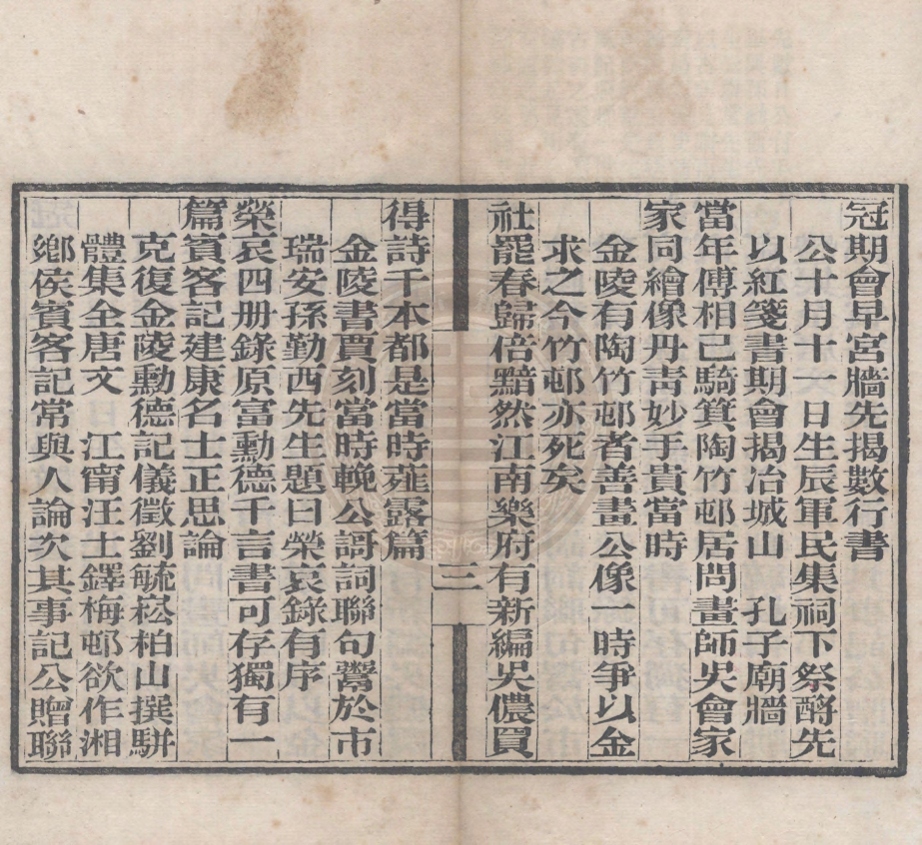 冠期會早宮牆先揭數行書
公十月十一日生辰軍民集祠下祭酹先
以紅箋書期會揭冶城山　孔子廟牆
當年傅相已騎箕陶竹邨居問畫師吳會家
家同繪像丹靑妙手貴當時
金陵有陶竹邨者善畫公像一時爭以金
求之今竹邨亦死矣
社罷春歸倍黯然江南樂府有新編吳儂買
三
得詩千本都是當時薤露篇
金陵書賈刻當時輓公謌詞聯句鬻於市
瑞安孫勤西先生題曰榮哀錄有序
榮哀四册錄原富勳德千言書可存獨有一
篇賓客記建康名士正思論
克復金陵勳德記儀徵劉毓崧柏山撰駢
體集全唐文　江甯汪士鐸梅邨欲作湘
鄉侯賓客記常與人論次其事記公贈聯